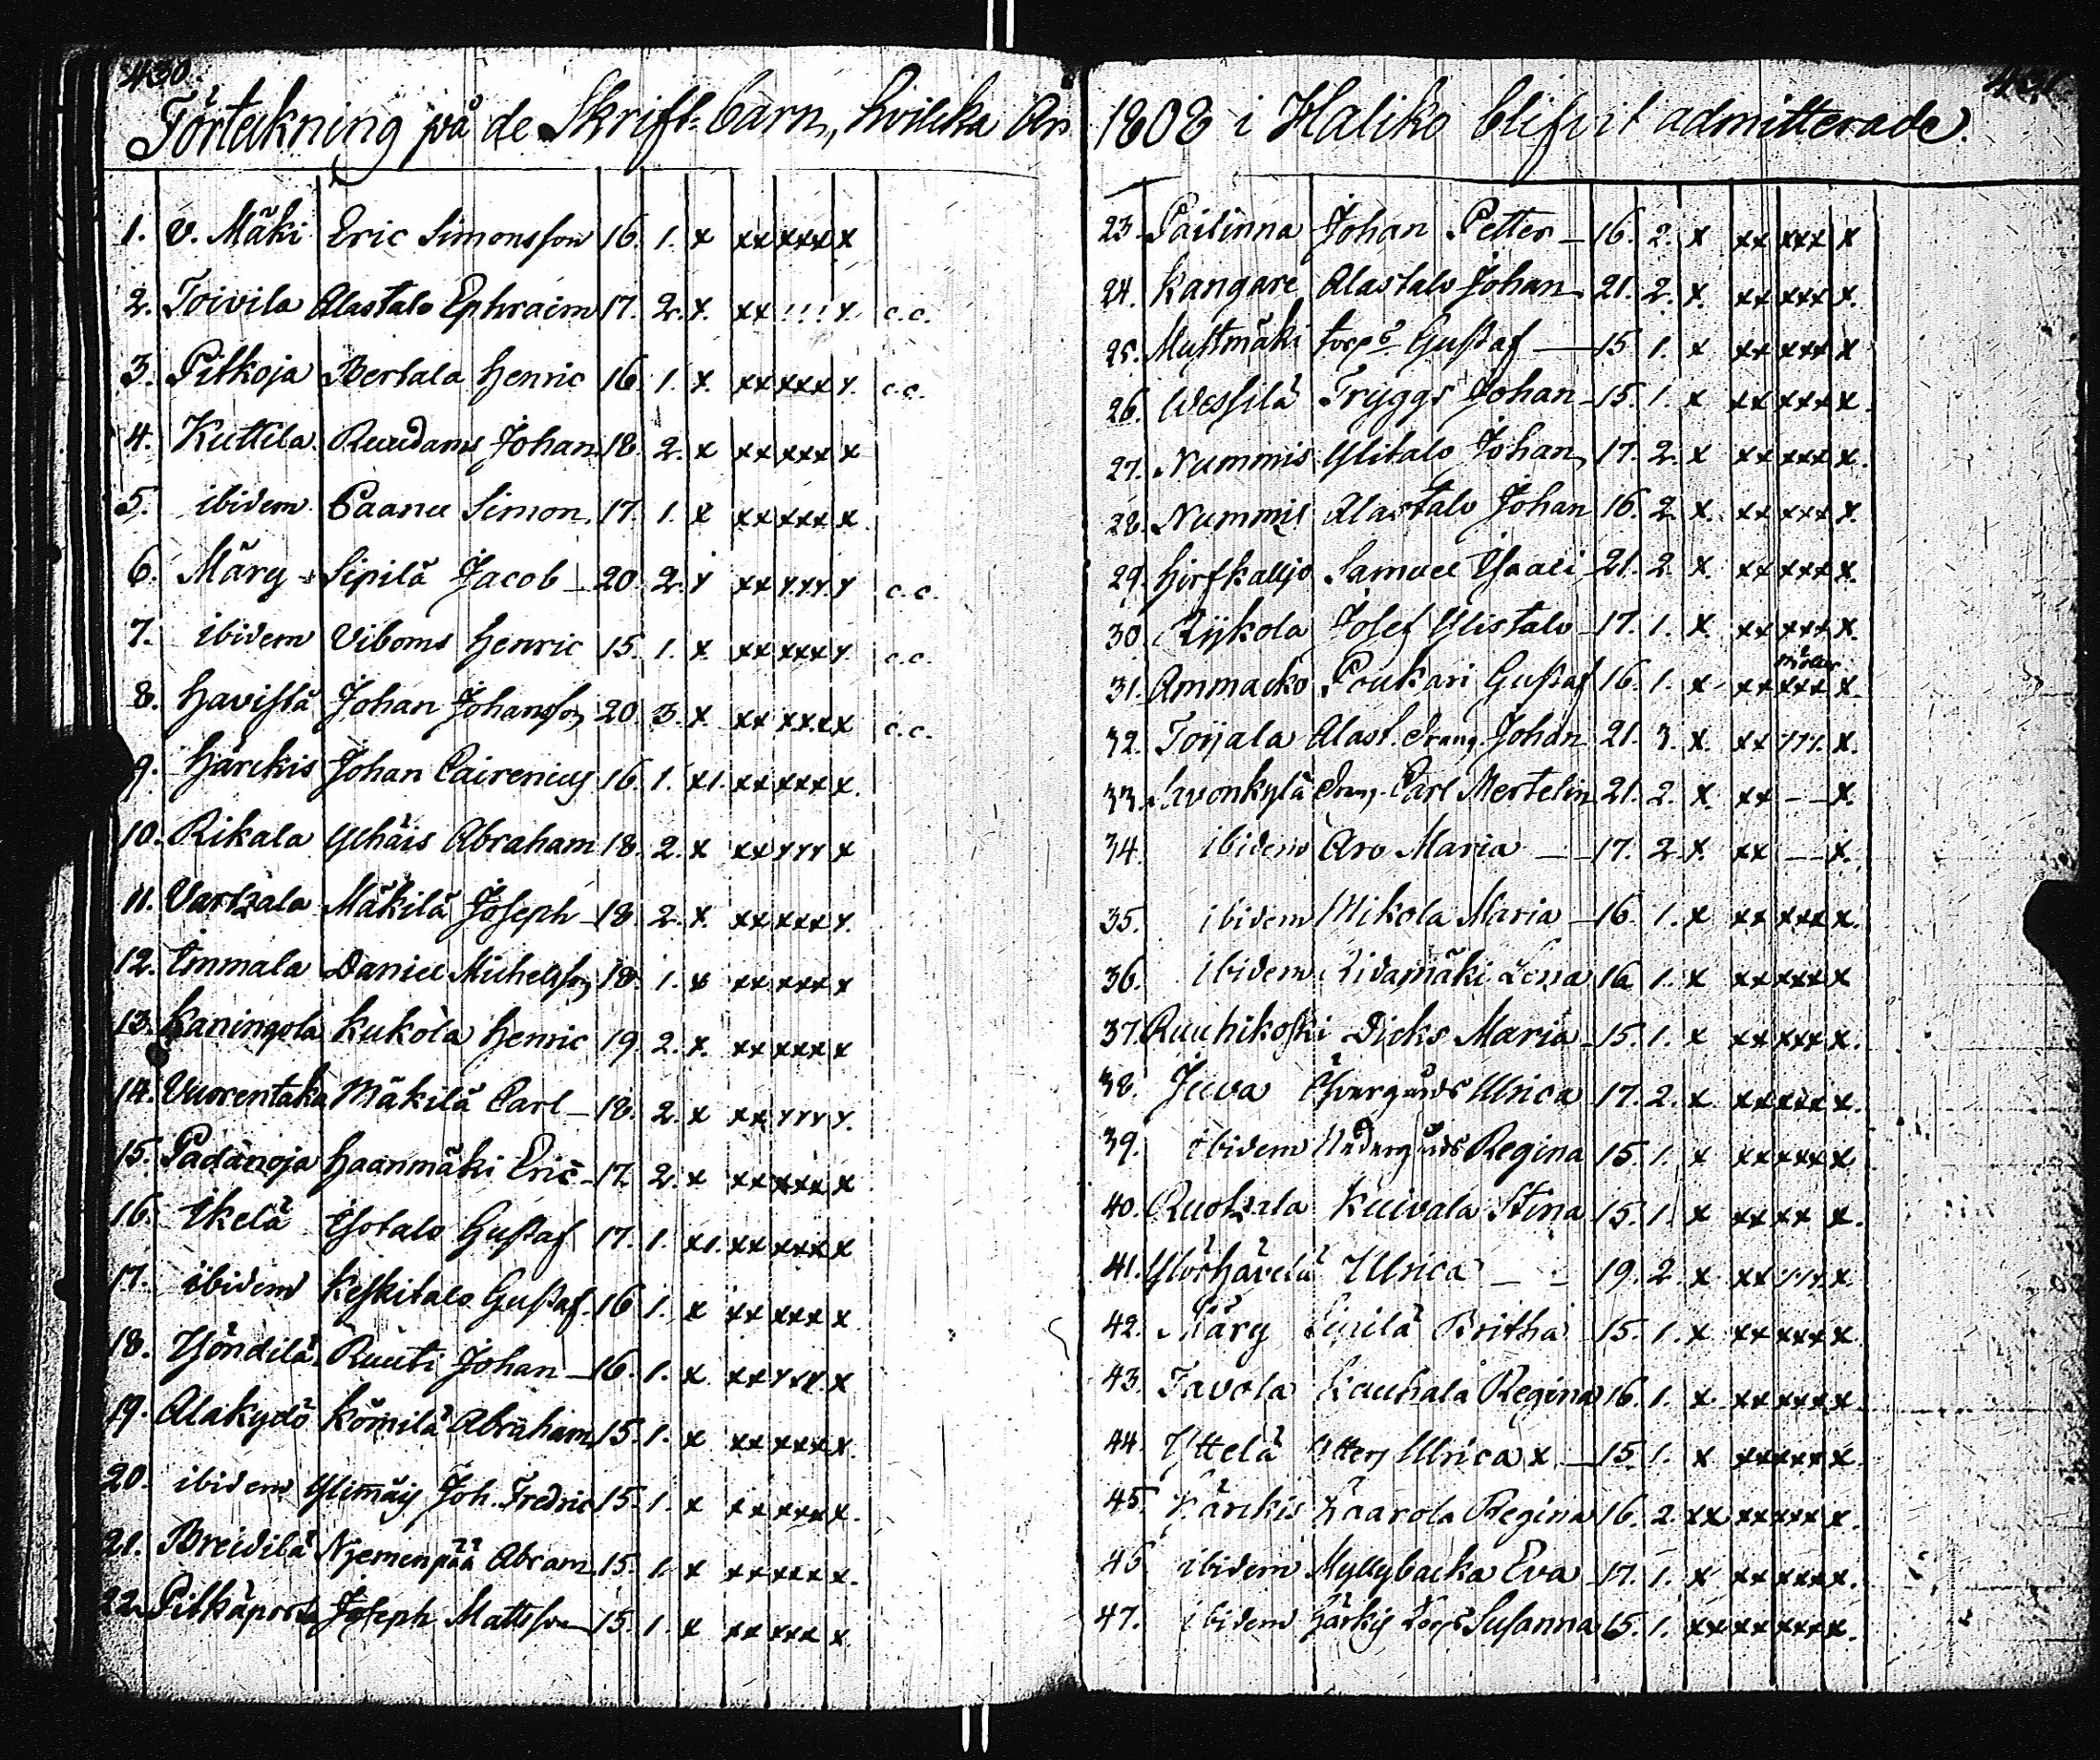 430.
Förteckning på de Skrift-barn, hvilcka År
1. V. Mäki Eric Simonsson 16. 1. x xx xxx x
2. Toivila Alastalo Ephraim 17. 2. x. xx !!! x. c.c.
3. Pitkoja Bertala Henric 16. 1. x. xx xxx x. c.c.
4. Kuttila Ruudams Johan 18. 2. x xx xxx x
5. ibidem Paanu Simon 17. 1. x xx xxx x.
6. Märy Sipilä Jacob 20. 2. x xx xxx x c.c.
7. ibidem Viboms Henric 15. 1. x. xx xxx x. c.c.
8. Havistä Johan Johansson 20. 3. x. xx xxx x c.c.
9. Härckis Johan Cairenius 16. 1. x1. xx xxx x.
10. Rikala Ylhäis Abraham 18. 2. x xx xxx x
11. Vartzala Mäkilä Joseph 18. 2. x. xx xxx x.
12. Immala Daniel Michelsson 18. 1. x xx xxx x
13. Kaningola Kukola Henric 19. 2. x. xx xxx x
14. Vuorentaka Mäkilä Carl 18. 2. x xx xxx x.
15. Padanoja Haanmäki Eric 17. 2. x xx xxx x
16. Ikelä Isotalo Gustaf 17. 1. x1. xx xxx x
17. ibidem Keskitalo Gustaf 16 1. x xx xxx x
18. Yöndilä Ruuti Johan 16. 1. x xx xxx x
19. Alakydö Kömilä Abraham 15. 1. x xx xxx x.
20. ibidem Ylimäis Joh. Fredric 15. 1. x xx xxx x.
21. Breidilä Njemenpää Abram 15. 1. x xx xxx x.
22. Pitkäporta Joseph Mattsson 15. 1. x xx xxx x.
1808 i Haliko blifvit admitterade.
23. Pailinna Johan Petter 16. 2. x xx xxx x
24. Kangare Alastalo Johan 21. 2. x. xx xxx x.
25. Mustmäki torps Gustaf 15 1. x xx xxx x
26. Wessilä Tryggs Johan 15. 1. x xx xxx x.
27. Nummis Ylitalo Johan 17. 2. x xx xxx x.
28. Nummis Alastalo Johan 16. 2. x. xx xxx x.
29. Hirfkalljo Samuel Isaaci 21. 2. x. xx xxx x.
30. Rijkola Josef Ylistalo 17. 1. x. xx xxx x.
31. Ammacko Poukari Gustaf 16. 1. x xx xxx x.
32. Toijala Alast. Drang Johan 21. 3. x. xx xxx. x.
33. Drang. Carl Mertelin 21. 2. x. xx -- x.
34. ibidem Aro Maria 17. 2. x. xx -- x.
35. ibidem Mikola Maria 16. 1. x xx xxx x.
36. ibidem Ridamäki Lena 16. 1. x xx xxx x
37. Ruuhikoski Dicks Maria 15. 1. x xx xxx x.
38. Juva Öfvergårds Ulrica 17. 2. x xx xxx x.
39. ibidem Nedergårds Regina 15. 1. x xx xxx x.
40. Ruotzala Kuivala Stina 15. 1. x xx xx x.
41. Ylörhävelä Ulrica 19. 2 x xx xxx x.
42. Märy Sipilä Britha 15. 1. x xx xxx x.
43. Tavola Kauhala Regina 16. 1. x. xx xxx x.
44. Yttelä Ulrica x 15. 1. x xx xxx x.
45. Härckis Kaarola Regina 16. 2. xx xx xxx x.
46 ibidem Myllybacka Eva 17. 1. x xx xxx x.
47. ibidem Härkis Torps Susanna 15. 1. xx xx xxx x.